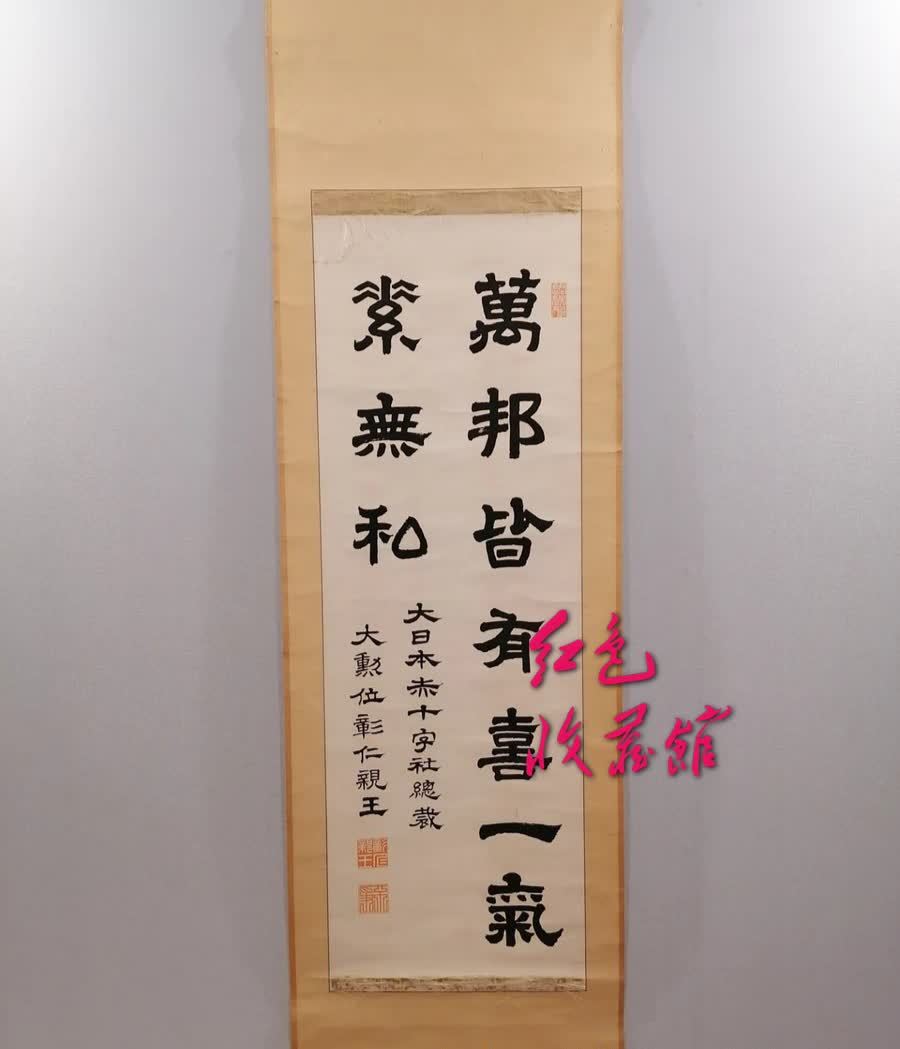 萬邦皆有喜一氣
素無私
大日本赤十字社總裁
大勲位彰仁親王
红色
收藏館